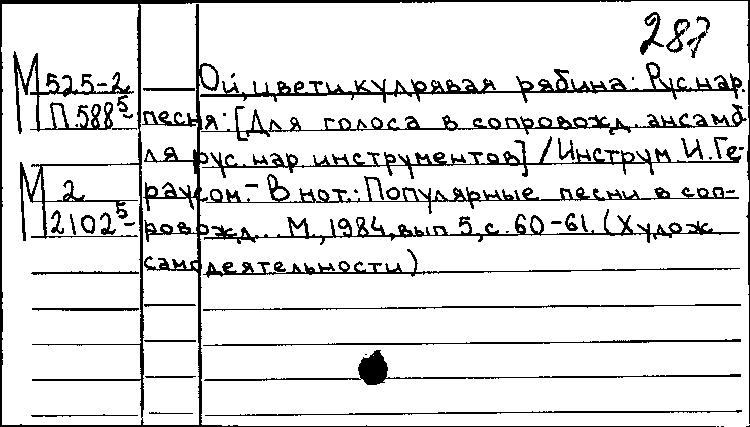 287
М 525-2 Ой, цвети, кудрявая рябина: Рус. нар.
П 588⁵ песня: [Для голоса в сопровожд. ансамб
ля рус. нар. инструментов] / Инструм. И. Ге-
М 2 раусом. - В нот.: Популярные песни в соп-
2102⁵ ровожд... М., 1984, вып 5, с. 60-61. (Худож
самодеятельности)